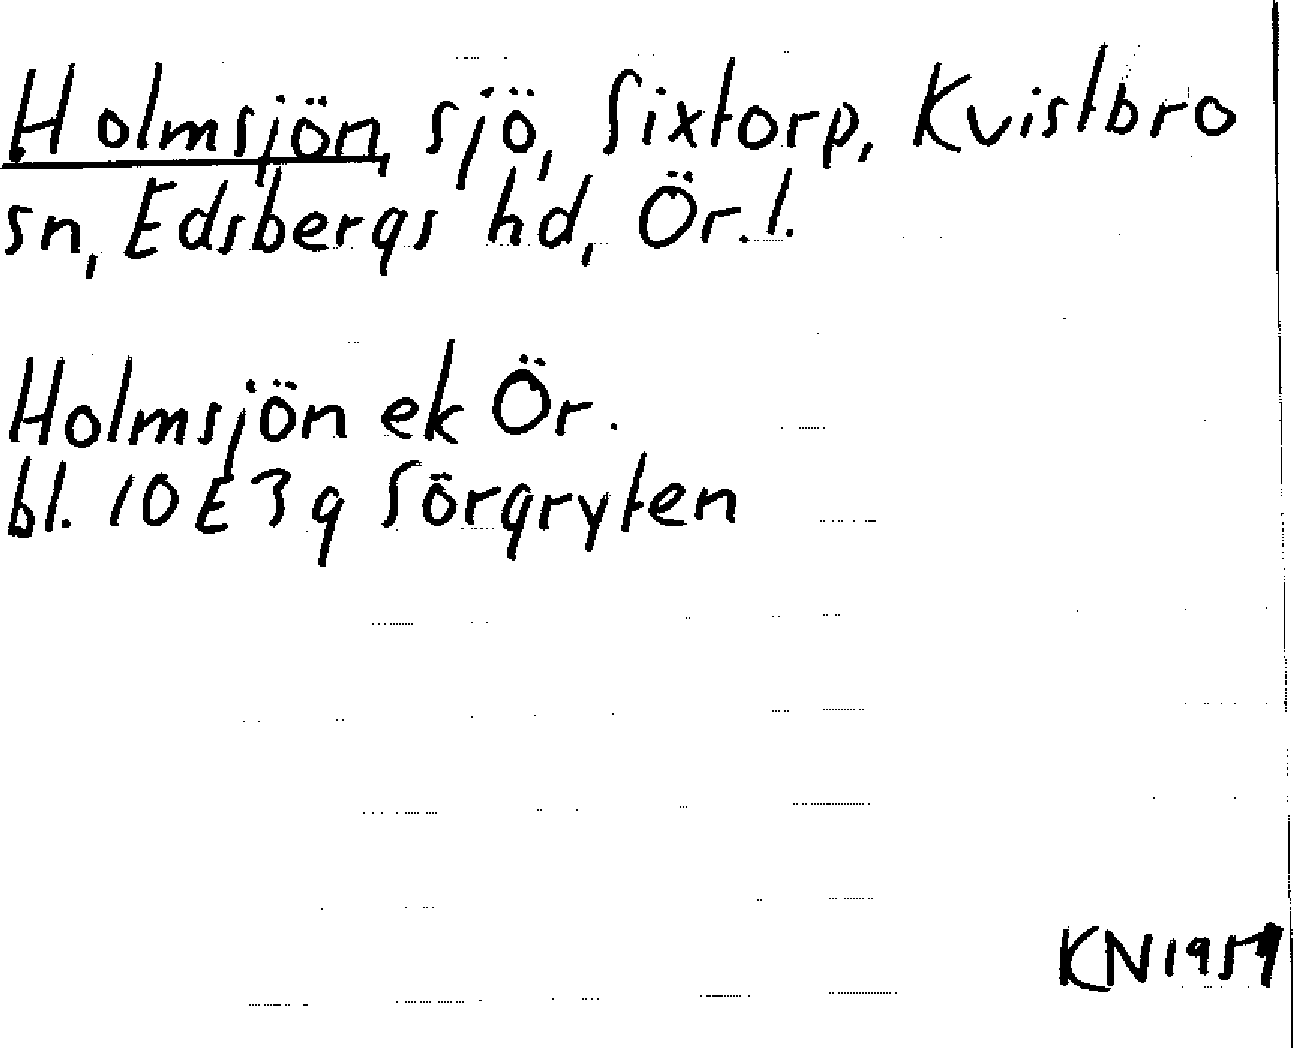 Holmsjön, sjö, Sixtorp, Kvistbro
sn, Edsbergs hd, Ör. l.
Holmsjön ek Ör.
bl. 10E3g Sörgryten